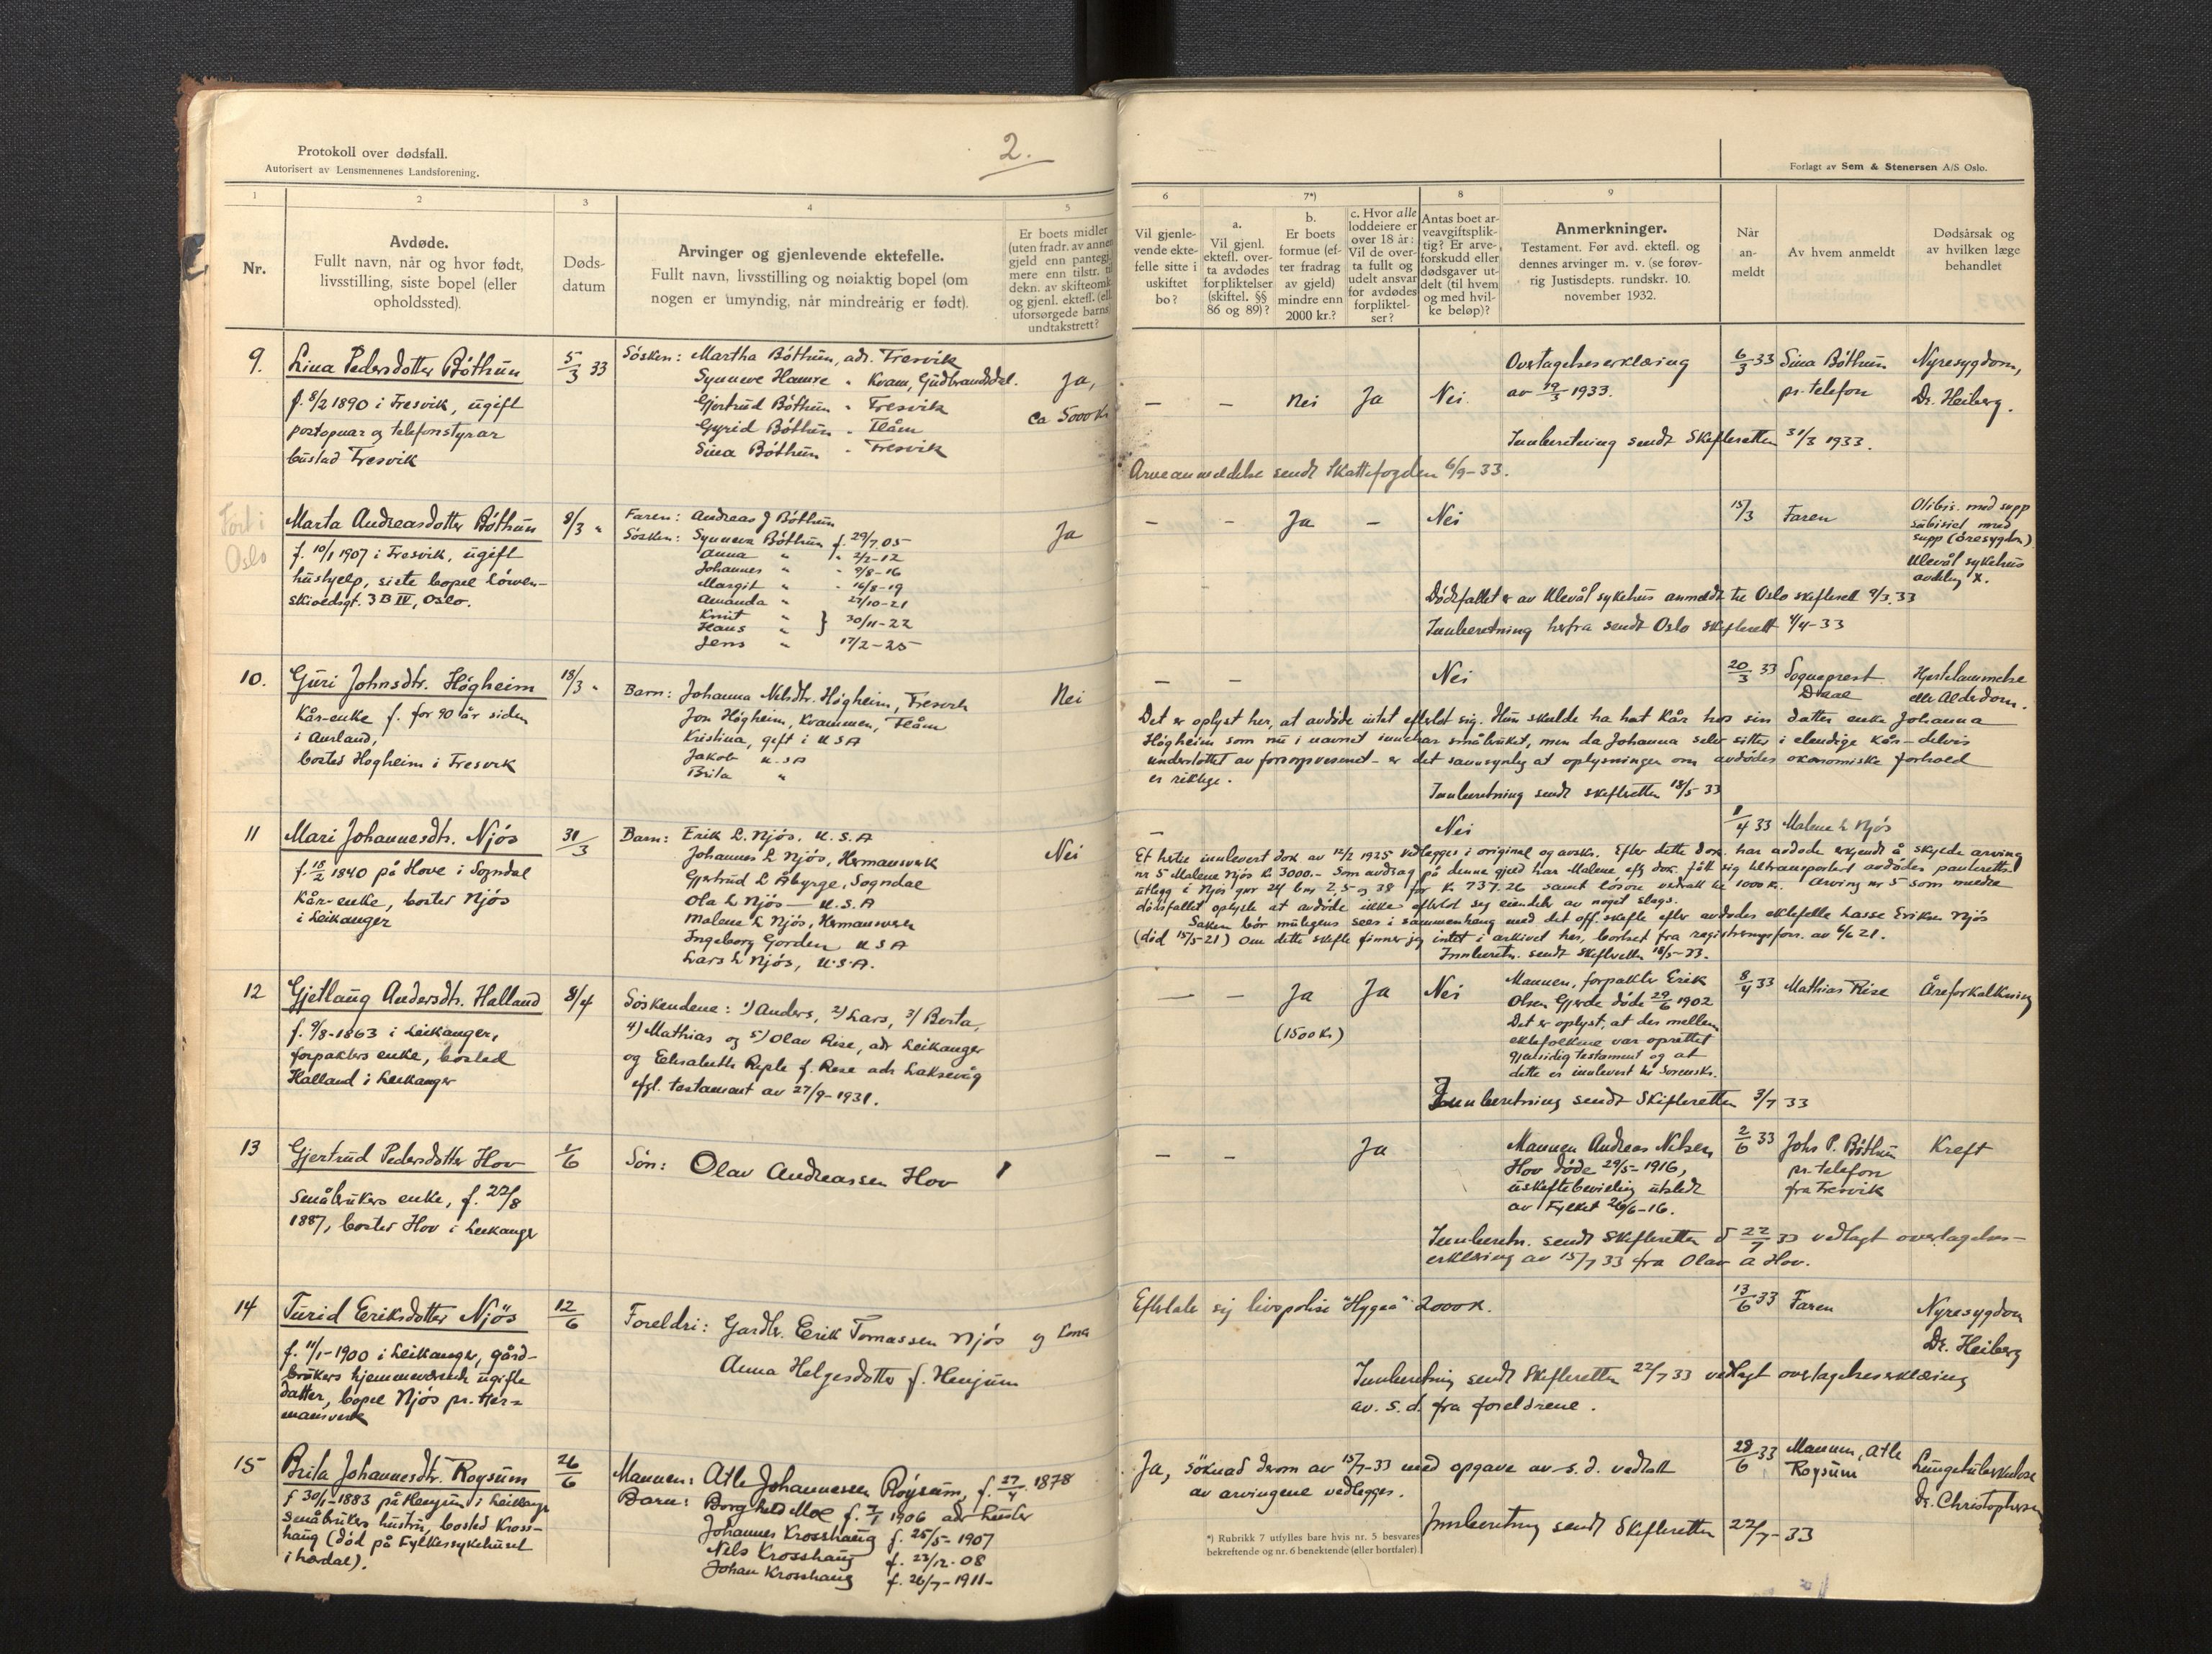 Protokoll over dødsfall.
Autorisert av Lensmennenes Landsforening.
2.
Forlagt av Sem & Stenersen A/S Oslo.
1
2
3
4
5
6
7*)
8
9
Nr.
Avdøde.
Fullt navn, når og hvor født,
livsstilling, siste bopel (eller
opholdssted).
Døds-
datum
Arvinger og gjenlevende ektefelle.
Fullt navn, livsstilling og nøiaktig bopel (om
nogen er umyndig, når mindreårig er født).
Er boets midler
(uten fradr. av annen
gjeld enn pantegj.)
mere enn tilstr. til
dekn. av skifteomk.
og gjenl. ektef. (ell.
uforsørgede barns)
undtakstrett?
Vil gjenle-
vende ekte-
felle sitte i
uskiftet
bo?
a.
Vil gjenl.
ektefl. over-
ta avdødes
forpliktelser
(skiftel. §§
86 og 89)?
b.
Er boets
formue (ef-
ter fradrag
av gjeld)
mindre enn
2000 kr.?
c. Hvor alle
loddeiere er
over 18 år:
Vil de over-
ta fullt og
udelt ansvar
for avdødes
forpliktel-
ser?
Antas boet ar-
veavgiftsplik-
tig? Er arve-
forskudd eller
dødsgaver ut-
delt (til hvem
og med hvil-
ke beløp)?
Anmerkninger.
Testament. Før avd. ektefl. og
dennes arvinger m. v. (se forøv-
rig Justisdepts. rundskr. 10.
november 1932.
Når
an-
meldt
Av hvem anmeldt
Dødsårsak og
av hvilken læge
behandlet
9.
Lina Pedersdotter Bóthun
f. 8/2 1890 i Fresvik, ugift
postopnar og telefonstyrar
bustad Fresvik
5/3 33
Sósken: Martha Bóthun, adr. Fresvik
Synneve Hamre " Kvam, Gudbrandsdal.
Gjertrud Bóthun " Fresvik
Gyrid Bóthun " Flåm
Sina Bóthun " Fresvik
Ja,
ca 5000 Kr
—
—
Nei
Ja
Nei.
Overtagelseserklæring
av 19/3 1933.
6/3 33
Sina Bóthun
pr. telefon
Nyresygdom,
Dr. Heiberg.
Innberetning sendt Skifteretten 31/3 1933.
Arveanmeldelse sendt Skattefogden 6/9-33.
Ført i
Oslo
Marta Andreasdotter Bóthun
f. 10/1 1907 i Fresvik, ugift
hushjelp, siste bopel Lówen-
skioldsgt. 3 B IV, Oslo.
8/3 "
Faren: Andreas J Bóthun
Sósken: Synneva Bóthun f. 29/7.05
Anna " " 2/2-12
Johannes " " 9/8-16
Margit " " 16/8-19
Amanda " 27/10-21
Knut "
Hans " } 30/11-22
Jens " 17/2-25
Ja
—
—
Ja
—
Nei
15/3
Faren
med supp
supp (óresygdom)
Ulevål sykehus
avdeling X.
Dódsfallet er av Ulevål sykehus anmeldt til Oslo skifterett 9/3.33
Innberetning herfra sendt Oslo skifterett 4/4-33
10.
Guri Johnsdtr. Hógheim
Kår-enke f. for 90 år siden
i Aurland,
bosted Hógheim i Fresvik
18/3 "
Barn: Johanna Nilsdtr. Hógheim, Fresvik
Jon Hógheim, Kvammen, Flåm
Kristina, gift i U S A
Jakob U.SA
Brita "
Nei
—
—
Nei
20/3 33
Sogneprest
Daae
Hjertelammelse
eller Alderdom.
Det er oplyst her, at avdóde intet efterlot sig. Hun skulde ha hat Kår hos sin datter enke Johanna
Hógheim som nu i navnet innehar småbruket, men da Johanna selv sitter i elendige kår – delvis
understóttet av forsorgsvesenet – er det sannsynlig at oplysningen om avdódes okonomiske forhold
er riktige.
Innberetning sendt skifteretten 18/5-33
11
Mari Johannesdtr. Njós
f. 18/2 1840 på Hove i Sogndal
Kår-enke, bosted Njós
i Leikanger
31/3
Barn: Erik L. Njós, U.S.A
Johannes L Njós, Hermansverk
Gjertrud L Åberge, Sogndal
Ola L Njós — U.S.A
Malene L Njós, Hermansverk
Ingeborg Gorden U S A
Lars L Njós, U.S.A.
Nei
—
Nei
1/4 33
Malene L Njós
Et hertil innlevert dok av 12/2 1925 vedlegges i original og avskr. Efter dette dok. har avdóde erkjendt å skylde arving
nr 5 Malene Njós kr 3000.- Som avdrag på denne gjeld har Malene efg dok. fått sig tiltransportert avdódes panterettsl.
utlegg i Njós gnr 24 bnr 2, 5 og 38 for kr 737.26 samt lósóre verdsatt til 1000 K. Arving nr 5 som meldte
dódsfallet oplyste at avdóde ikke efterlot sig eiendeler av noget slags.
Saken bór muligens sees i sammenheng med det off. skifte efter avdódes ektefelle Lasse Eriksen Njós
(dód 15/5-21) Om dette skifte finner jeg intet i arkivet her, bortset fra registreringsforr. av 6/6 21.
Innberetn. sendt skifteretten 18/5-33.
12
Gjetlaug Andersdtr. Halland
f. 9/8-1863 i Leikanger,
forpakters enke, bosted
Halland i Leikanger
8/4
Sóskendene: 1) Anders, 2) Lars, 3) Berta,
4) Mathias og 5) Olav Rise, adr Leikanger
og Elisabeth Reple f. Rise adr Laksevåg
efgl. testament av 27/9-1931.
—
—
Ja
(1500 Kr)
Ja
Nei
Mannen, forpakter Erik
Olsen Gjerde dóde 29/6 1902
Det er oplyst, at der mellem
ektefolkene var oprettet
gjensidig testament og at
dette er innlevert til Sorenskr.
8/4 33
Mathias Rise
Åreforkalkning
Innberetning sendt Skifteretten 3/7 33
13
Gjertrud Pedersdotter Hov
Småbrukers enke, f. 22/8
1887, bosted Hov i Leikanger
1/6
Són: Olav Andreassen Hov
—
—
Ja
Mannen Andreas Nilsen
Hov dóde 29/5-1916,
uskiftebevilling utstedt
av Fylket 26/6-16.
2/6 33
Johs P. Bóthun
pr. telefon
fra Fresvik
Kreft
Innberetn. sendt Skifteretten d 22/7 33 vedlagt overtagelses-
erklæring av 15/7 33 fra Olav A Hov.
14
Turid Eriksdotter Njös
f. 11/1-1900 i Leikanger, gård-
brukers hjemmeværende ugifte
datter, bopel Njós pr. Her-
mansverk
12/6
Foreldri: Gardbr. Erik Tomassen Njós og kona
Anna Helgesdotter f. Henjum
Efterlate sig livspolise "Hygea" 2000 K.
13/6 33
Faren
Nyresygdom
Dr. Heiberg
Innberetning sendt Skifteretten 22/7 33 vedlagt overtagelseserklæring
av. s. d. fra foreldrene.
15
Brita Johannesdtr. Roysum
f 30/1-1883 på Henjum i Leikanger
småbrukers hustru, bosted Kross-
haug (dód på Fylkessykehuset
i Lærdal).
26/6
Mannen: Atle Johannessen Róysum, f. 27/4 1878
Barn: Borghild Moe f. 7/1 1906 adr Luster
Johannes Krosshaug f. 25/5-1907
Nils Krosshaug f. 23/12-08
Johan Krosshaug f. 26/7-1911-
Ja, sóknad derom av 15/7-33 med opgave av s. d. vedtatt
av arvingene vedlegges.
28/6 33
Mannen, Atle
Roysum
Lungetuberkulose
Dr. Christophersen
Innberetning sendt Skifteretten 22/7-33
*) Rubrikk 7 utfylles bare hvis nr. 5 besvares
bekreftende og nr. 6 benektende (eller bortfaler)